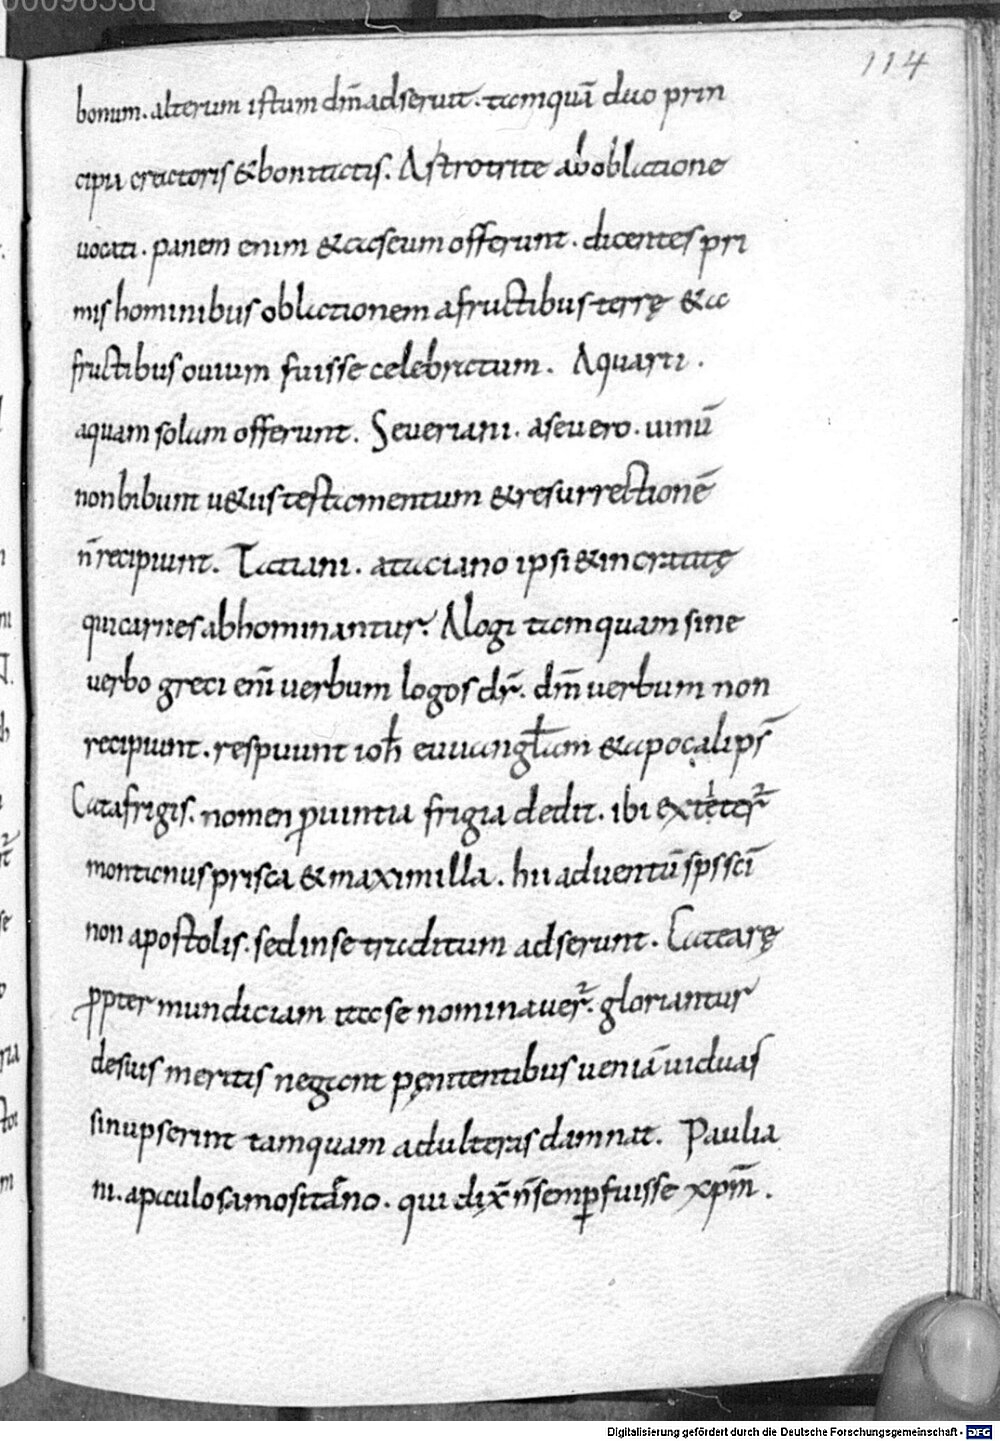 00009833d
114
bonum. alterum istum dm̄ adserunt. tamquā duo prin
cipia creatoris & bonitatis. Astrotrite ab oblatione
uocati. panem enim & caseum offerunt. dicentes pri
mis hominibus oblationem a fructibus terrę & a
fructibus ouium fuisse celebratum. Aquarii.
aquam solam offerunt. Seueriani. a seuero. uinū
non bibunt u&us testamentum & resurrectionē
n̄ recipiunt. Tatiani. a taciano ipsi & incratitę
qui carnes abhominantur. Alogi tamquam sine
uerbo greci enī uerbum logos dr̄. dm̄ uerbum non
recipiunt. respuunt ioh̄ euuangłam & apocalips̄
Catafrigis. nomen ꝓuintia frigia dedit. ibi extiter̄
montanus prisca & maximilla. hii aduentū sp̄s sc̄i
non apostolis. sed in se traditum adserunt. Catarę
ꝓpter mundiciam ita se nominauer̄. gloriantur
de suis meritis negant pęnitentibus ueniā uiduas
si nupserint tamquam adulteras damnat. Paulia
ni. a paulo samositano. qui dix̄ n̄ semꝑ fuisse xp̄m̄.
Digitalisierung gefördert durch die Deutsche Forschungsgemeinschaft - DFG